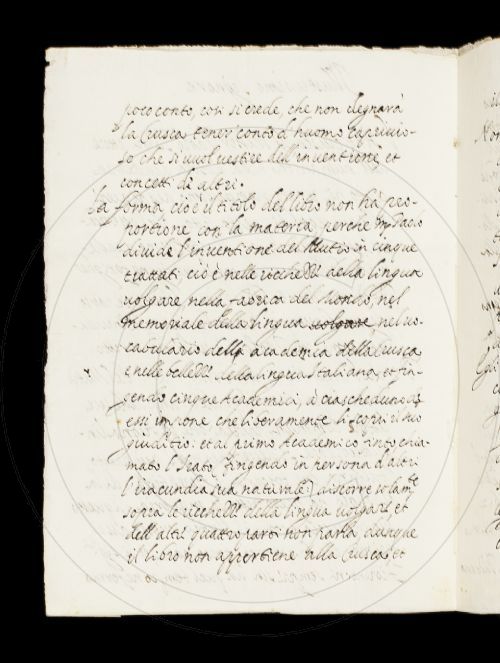 poco conto, cosi si crede, che non degnarà
la Crusca tener conto d'huomo capriccio-
so che si vuol vestire dell'inventione et
concetti de altri.
La forma cioè il titolo del libro non hà pro-
portione con la materia perche
divide l'inventione del in cinque
trattati cioè nelle ricchezze della lingua
volgare nella fabrica del Mondo, nel
memoriale della lingua volgare, nel vo-
cabulario della Academia della Crusca
e nelle bellezze della lingua Italiana, et fin-
gendo cinque Academici, à ciascheduno de
essi impone che liberamente discorri il suo
giuditio: et al primo Academico finto chia-
mato l'Irato (fingendo in persona d'altri
l'iracundia sua naturale) discorre
sopra le ricchezze della lingua volgare et
dell'altri quattro parti non parla, dunque
il libro non appertiene alla Crusca, et